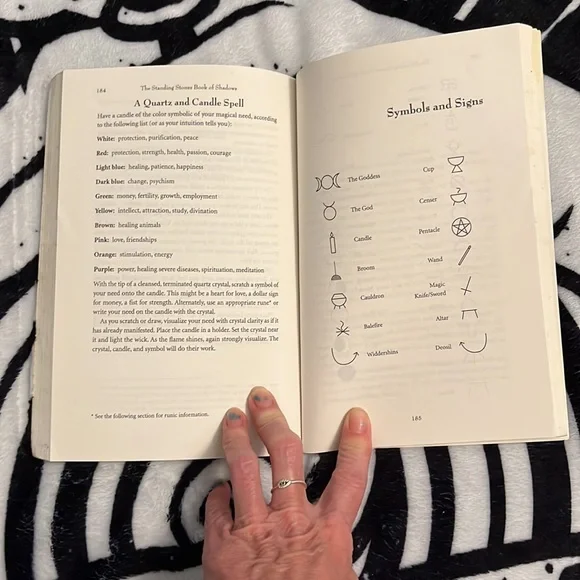 184
The Standing Stones Book of Shadows
A Quartz and Candle Spell
Have a candle of the color symbolic of your magical need, according
to the following list (or as your intuition tells you):
White: protection, purification, peace
Red: protection, strength, health, passion, courage
Light blue: healing, patience, happiness
Dark blue: change, psychism
Green: money, fertility, growth, employment
Yellow: intellect, attraction, study, divination
Brown: healing animals
Pink: love, friendships
Orange: stimulation, energy
Purple: power, healing severe diseases, spirituation, meditation
With the tip of a cleansed, terminated quartz crystal, scratch a symbol of
your need onto the candle. This might be a heart for love, a dollar sign
for money, a fist for strength. Alternately, use an appropriate rune* or
write your need on the candle with the crystal.
As you scratch or draw, visualize your need with crystal clarity as if it
has already manifested. Place the candle in a holder. Set the crystal near
it and light the wick. As the flame shines, again strongly visualize. The
crystal, candle, and symbol will do their work.
* See the following section for runic information.
Symbols and Signs
The Goddess
The God
Candle
Broom
Cauldron
Balefire
Widdershins
Cup
Censer
Pentacle
Wand
Magic
Knife/Sword
Altar
Deosil
185